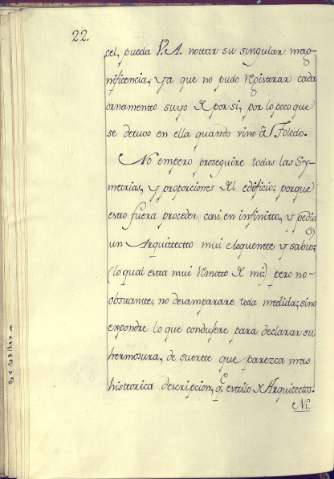 22.
sel, pueda V.A. notar su singular mag-
nificencia, ya que no pudo registrar cada
ornamento suyo de por si, por lo poco que
se detuvo en ella quando vino â Toledo.
No empero proseguire todas las Sy-
metrias, y proporciones del edificio; porque
esto fuera proceder casi en infinitto, y pedia
un Arquitectto mui eloquentte y sabio;
(lo qual esta mui remotto de mi) pero no-
obstante, no desamparare toda medida; sino
expondre lo que condusere para declarar su
hermosura, de suerte que parezca mas
historica descripcion, qe. estilo de Arquitectos.
Ni